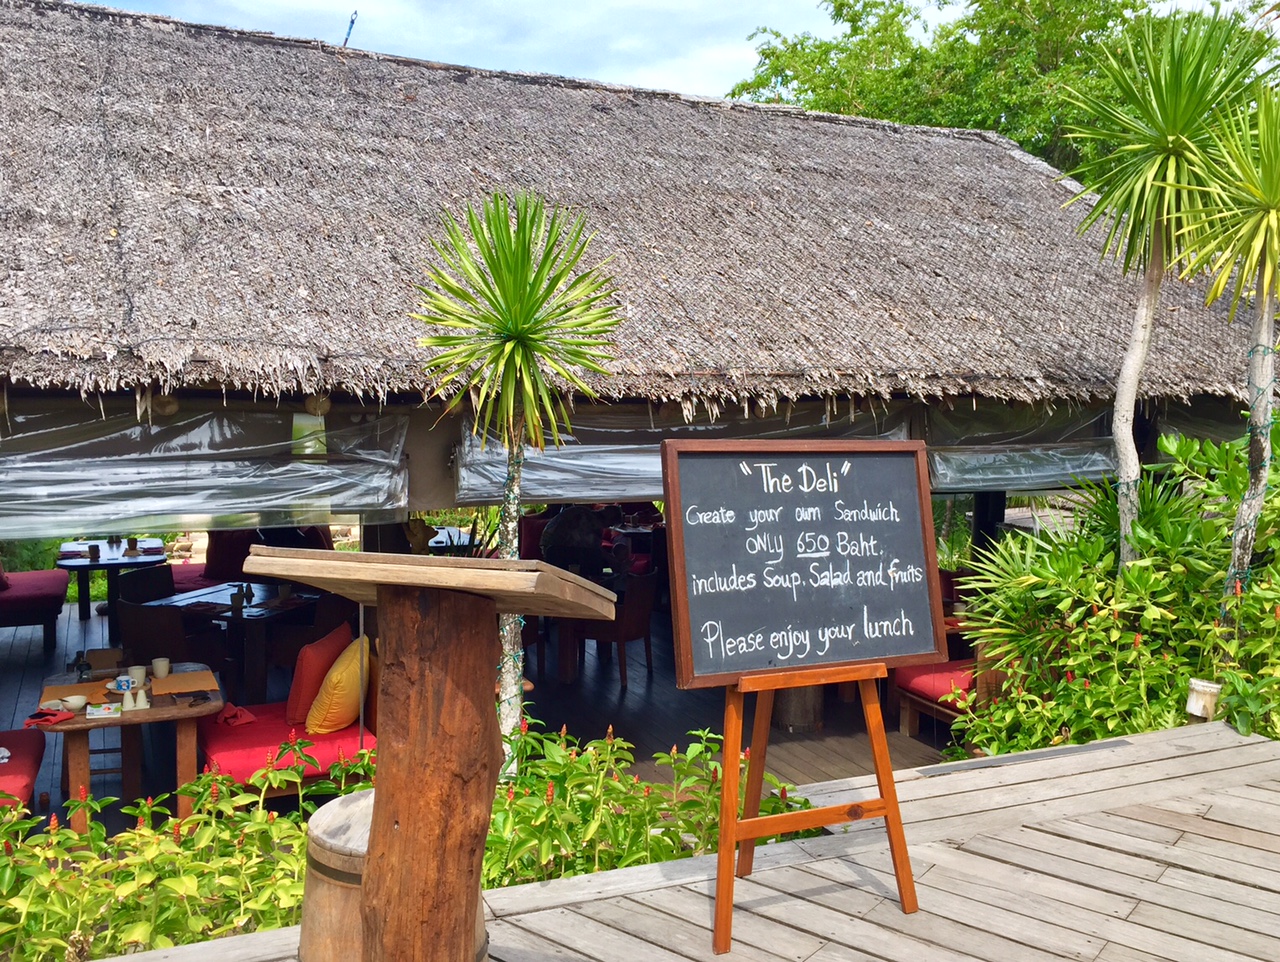 "The Deli"
Create your own Sandwich
ONLY 650 Baht.
includes Soup. Salad and fruits
Please enjoy your lunch